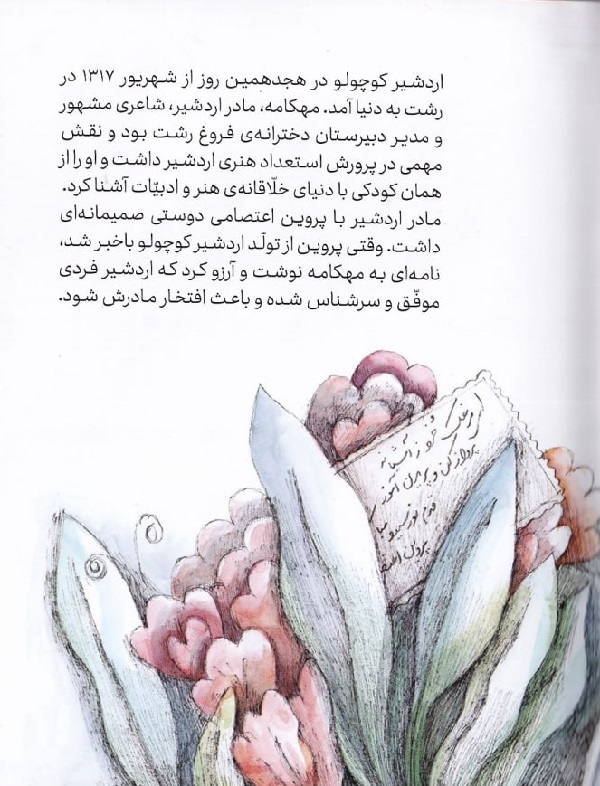 اردشیر کوچولو در هجدهمین روز از شهریور ۱۳۱۷ در
رشت به دنیا آمد. مهکامه، مادر اردشیر، شاعری مشهور
و مدیر دبیرستان دخترانه‌ی فروغ رشت بود و نقش
مهمی در پرورش استعداد هنری اردشیر داشت و او را از
همان کودکی با دنیای خلّاقانه‌ی هنر و ادبیّات آشنا کرد.
مادر اردشیر با پروین اعتصامی دوستی صمیمانه‌ای
داشت. وقتی پروین از تولّد اردشیر کوچولو باخبر شد،
نامه‌ای به مهکامه نوشت و آرزو کرد که اردشیر فردی
موفّق و سرشناس شده و باعث افتخار مادرش شود.
ای مرغک خرد ز آشیانه
پرواز کن و پریدن آموز